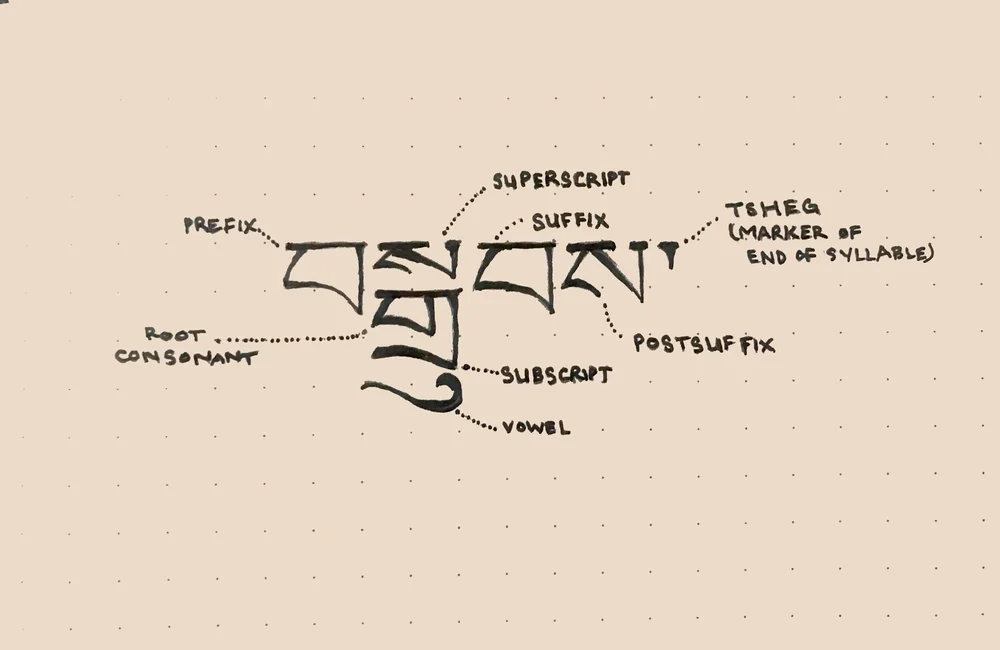 SUPERSCRIPT
PREFIX
SUFFIX
TSHEG
(MARKER OF
END OF SYLLABLE)
བསྒྲུབས་
ROOT
CONSONANT
POSTSUFFIX
SUBSCRIPT
VOWEL